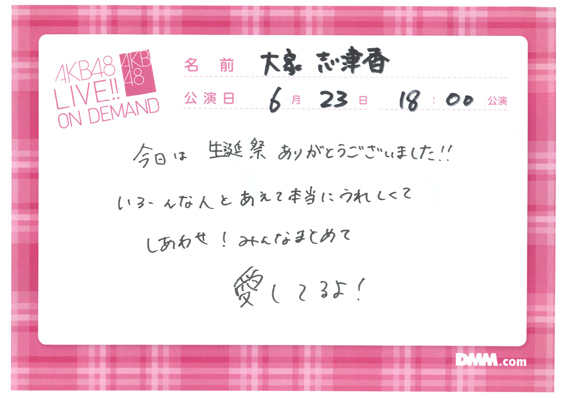 AKB48
LIVE!!
ON DEMAND
AKB
48
名前 大家 志津香
公演日 6月 23日 18:00 公演
今日は 生誕祭 ありがとうございました!!
いろーんな人とあえて本当にうれしくて
しあわせ!みんなまとめて
愛してるよ!
DMM.com